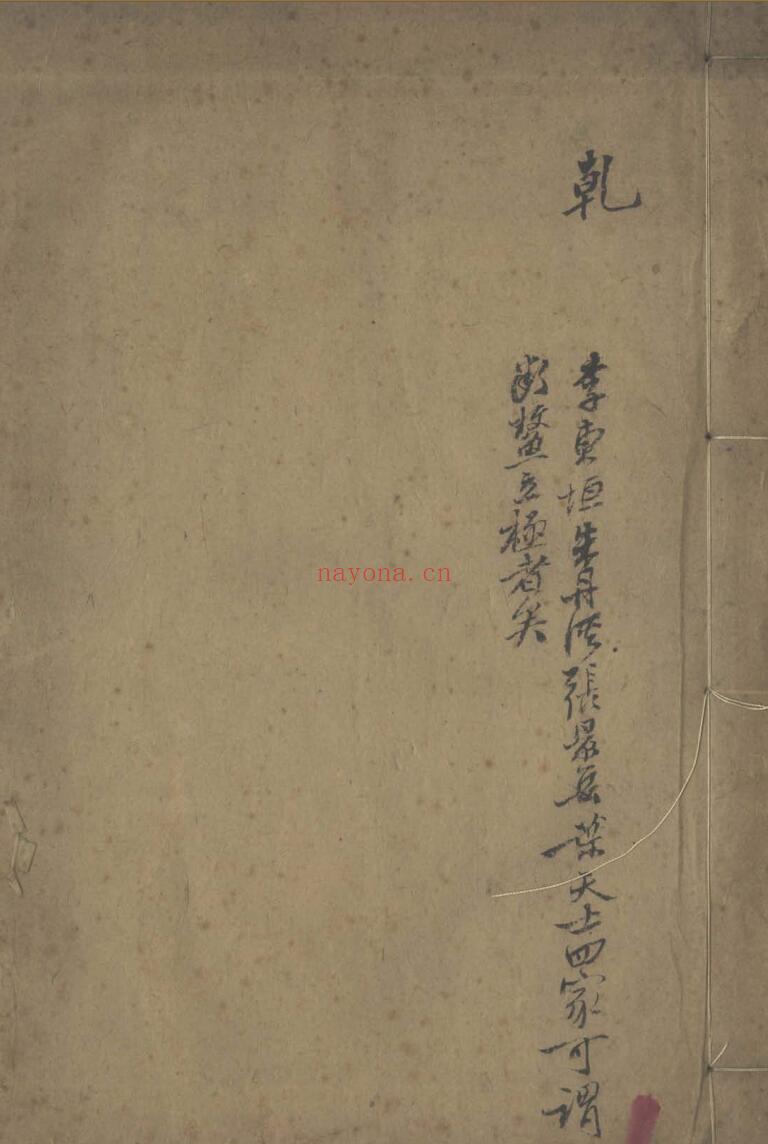 乾
李東垣朱丹溪張景岳葉天士四家可謂
断鰲立極者矣
nayona.cn